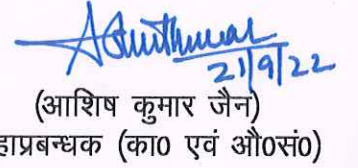 21/9/22
(आशिष कुमार जैन)
हाप्रबन्धक (का0 एवं औ0सं0)